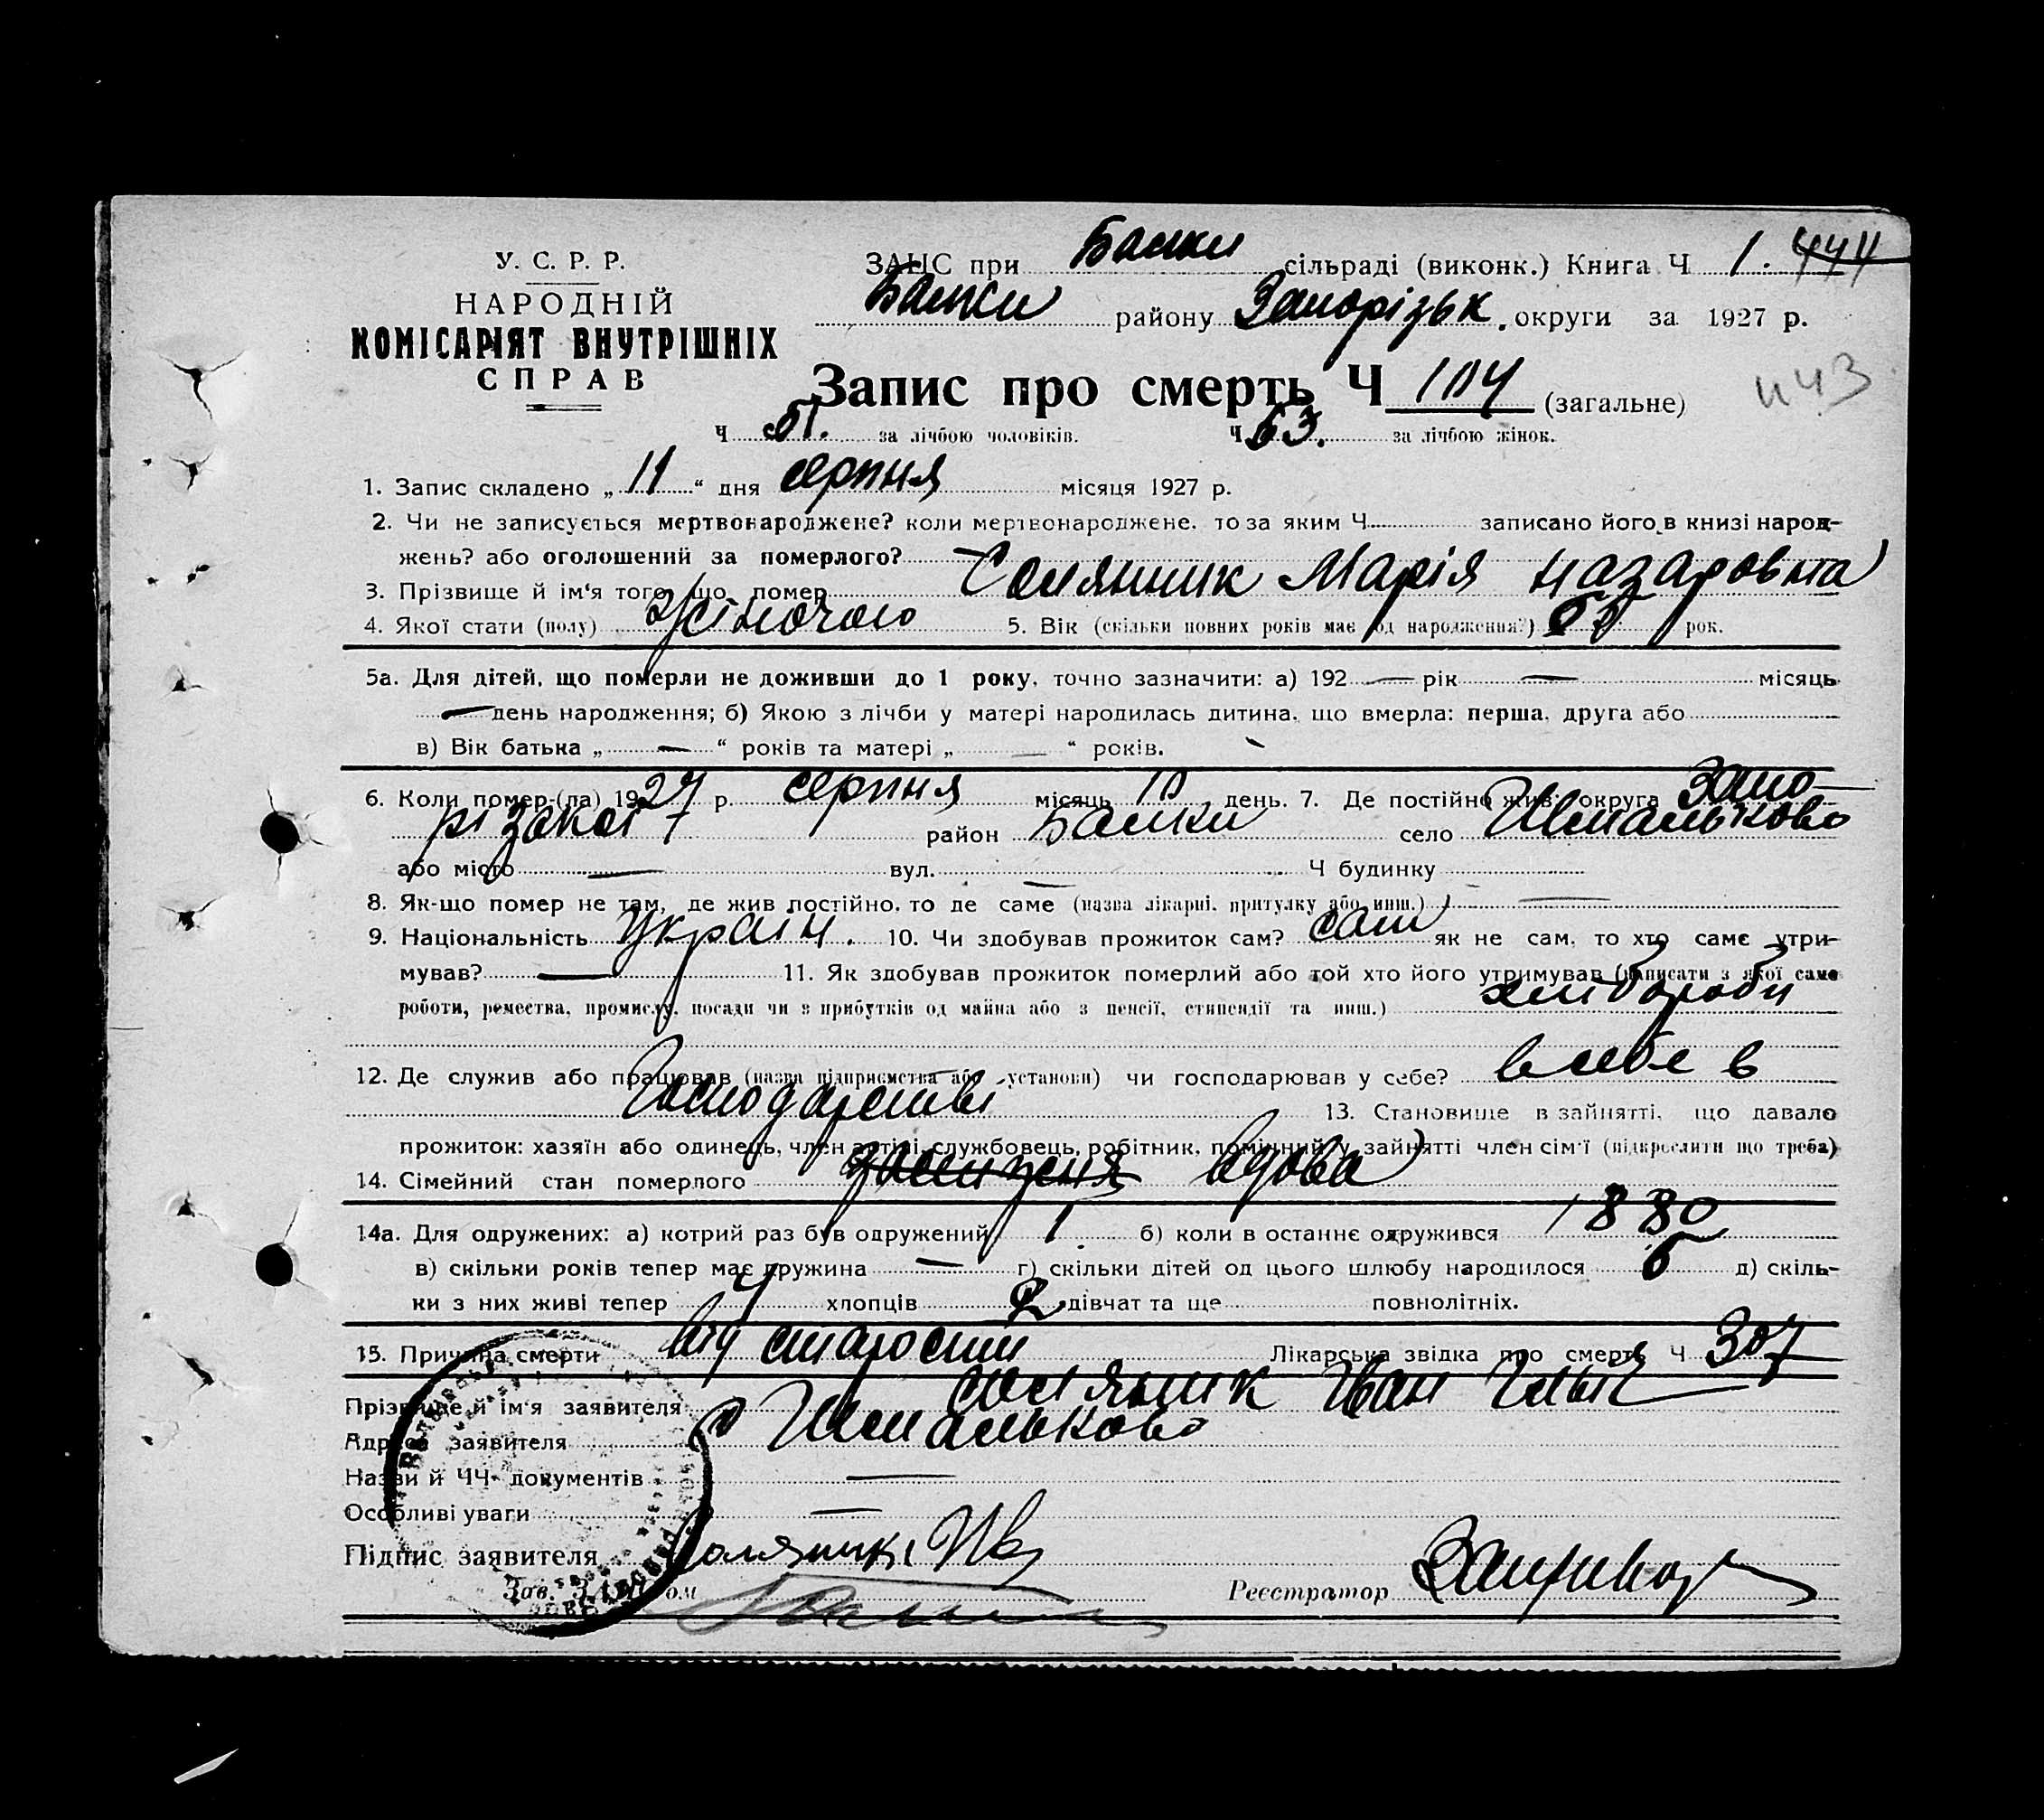 У. С. Р. Р.
НАРОДНІЙ
КОМІСАРІЯТ ВНУТРІШНІХ
СПРАВ
ЗАЦС при Балки сільраді (виконк.) Книга Ч 1. 444
Балки району Запорізьк. округи за 1927 р.
Запис про смерть Ч 104 (загальне)
443
Ч 51. за лічбою чоловіків. Ч 53. за лічбою жінок.
1. Запис складено „11“ дня серпня місяця 1927 р.
2. Чи не записується мертвонароджене? коли мертвонароджене, то за яким Ч записано його в книзі народ-
жень? або оголошений за померлого? —
3. Прізвище й ім'я того, що помер Солянник Марія Назаровна
4. Якої стати (полу) жіночого 5. Вік (скільки повних років має од народження?) рок.
5а. Для дітей, що померли не доживши до 1 року, точно зазначити: а) 192 — рік — місяць
— день народження; б) Якою з лічби у матері народилась дитина, що вмерла: перша, друга або
в) Вік батька „ — “ років та матері „ — “ років.
6. Коли помер (ла) 1927 р. серпня місяць 10 день. 7. Де постійно жив: округа Запо-
різької район Балки село Шмальково
або місто — вул. — Ч будинку
8. Як-що помер не там, де жив постійно, то де саме (назва лікарні, притулку або инш.) —
9. Національність україн. 10. Чи здобував прожиток сам? сам як не сам, то хто саме утри-
мував? — 11. Як здобував прожиток померлий або той хто його утримував (написати з якої саме
роботи, ремества, промислу, посади чи з прибутків од майна або з пенсії, стипендії та инш.) хліборобу
12. Де служив або працював (назва підприємства або установи) чи господарював у себе? в себе в
господарстві 13. Становище в зайнятті, що давало
прожиток: хазяїн або одинець, член артілі, службовець, робітник, помічний у зайнятті член сім'ї (підкреслити що треба)
14. Сімейний стан померлого замужня вдова
14а. Для одружених: а) котрий раз був одружений 1. б) коли в останнє одружився 1880
в) скільки років тепер має дружина — г) скільки дітей од цього шлюбу народилося 6 д) скіль-
ки з них живі тепер 4 хлопців 2 дівчат та ще повнолітніх.
15. Причина смерти від старости Лікарська звідка про смерть Ч 307
Прізвище й ім'я заявителя Солянник Іван Ільїч
Адреса заявителя с Шмальково
Назви й ЧЧ документів —
Особливі уваги —
Підпис заявителя Солянник Ив
Зав. ЗАЦС'ом Реєстратор